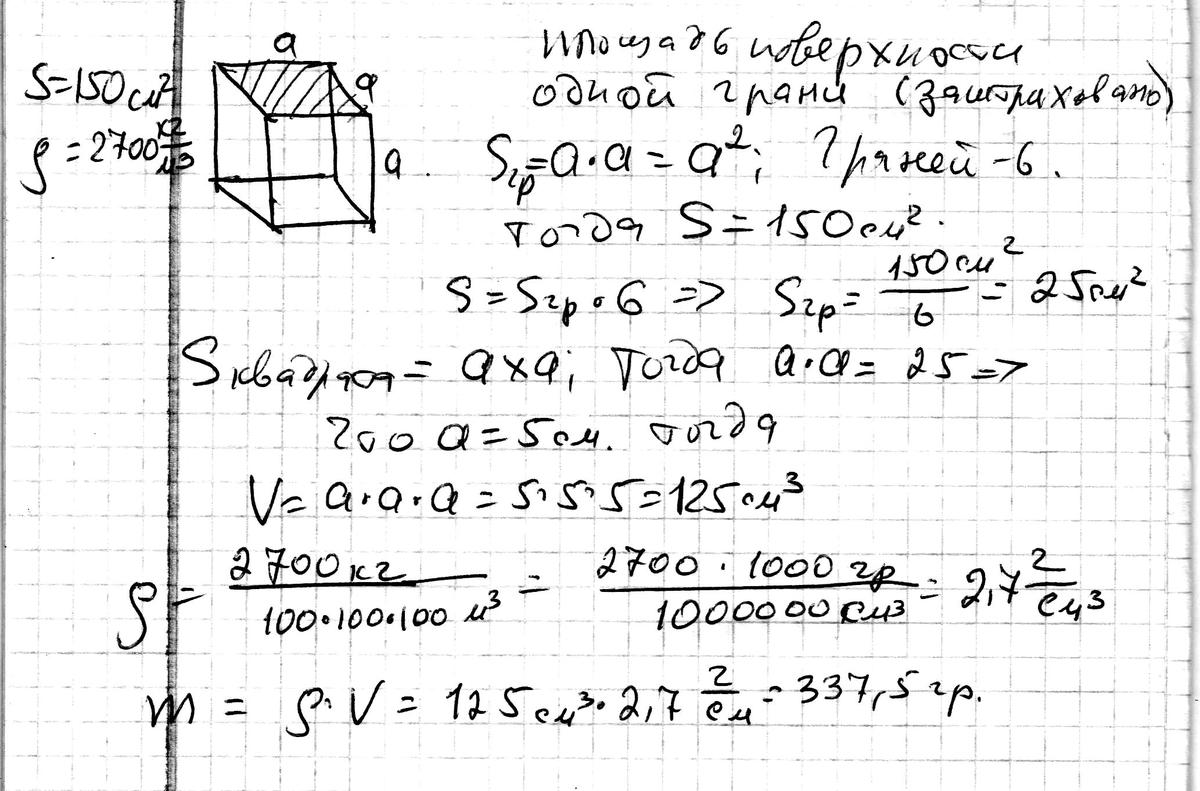 a
S=150 см²
ρ=2700 кг/м³
a
a
площадь поверхности
одной грани (заштриховано)
Sгр=a·a=a²; Граней-6.
тогда S=150 см².
S=Sгр·6 => Sгр= 150 см²/6 = 25 см²
Sквадрата= a×a; тогда a·a= 25 =>
что a=5 см. тогда
V= a·a·a = 5·5·5=125 см³
ρ = 2700 кг/100·100·100 м³ = 2700 · 1000 гр/1000000 см³ = 2,7 г/см³
m = ρ·V = 125 см³·2,7 г/см = 337,5 гр.